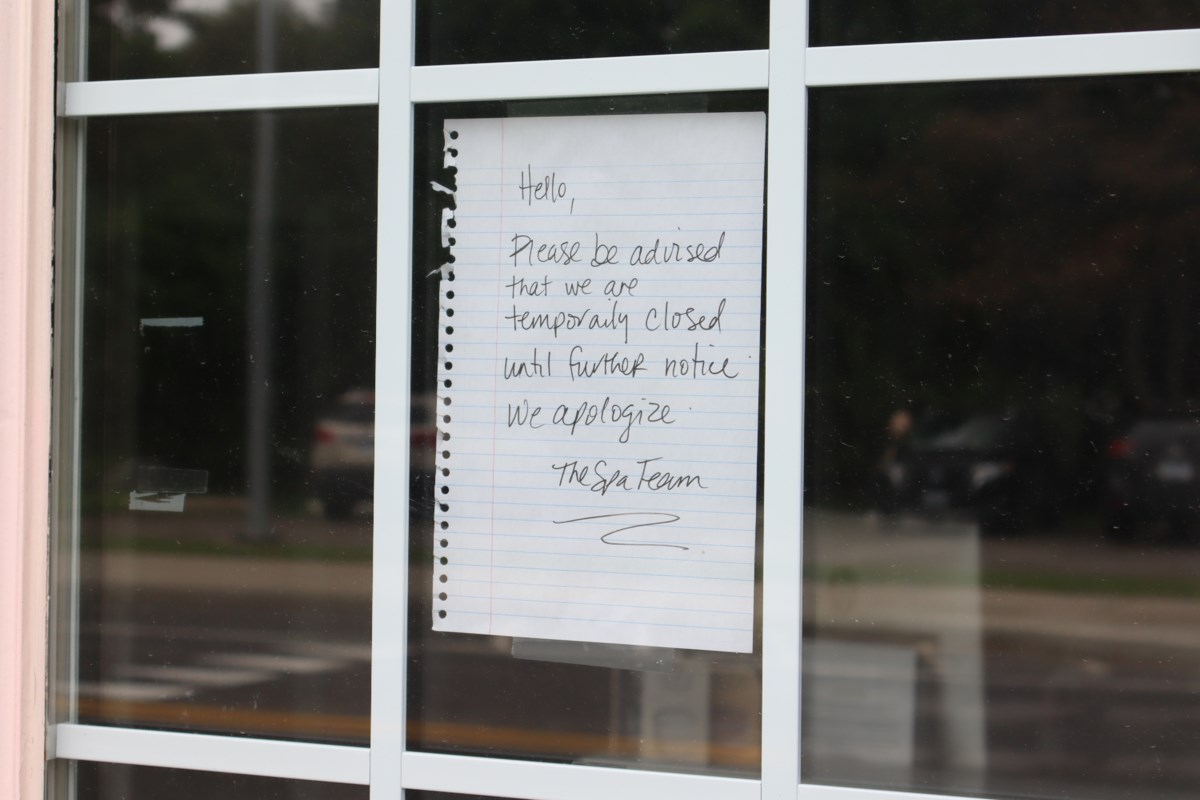 Hello,
Please be advised
that we are
temporaily closed
until further notice.
We apologize.
The Spa Team